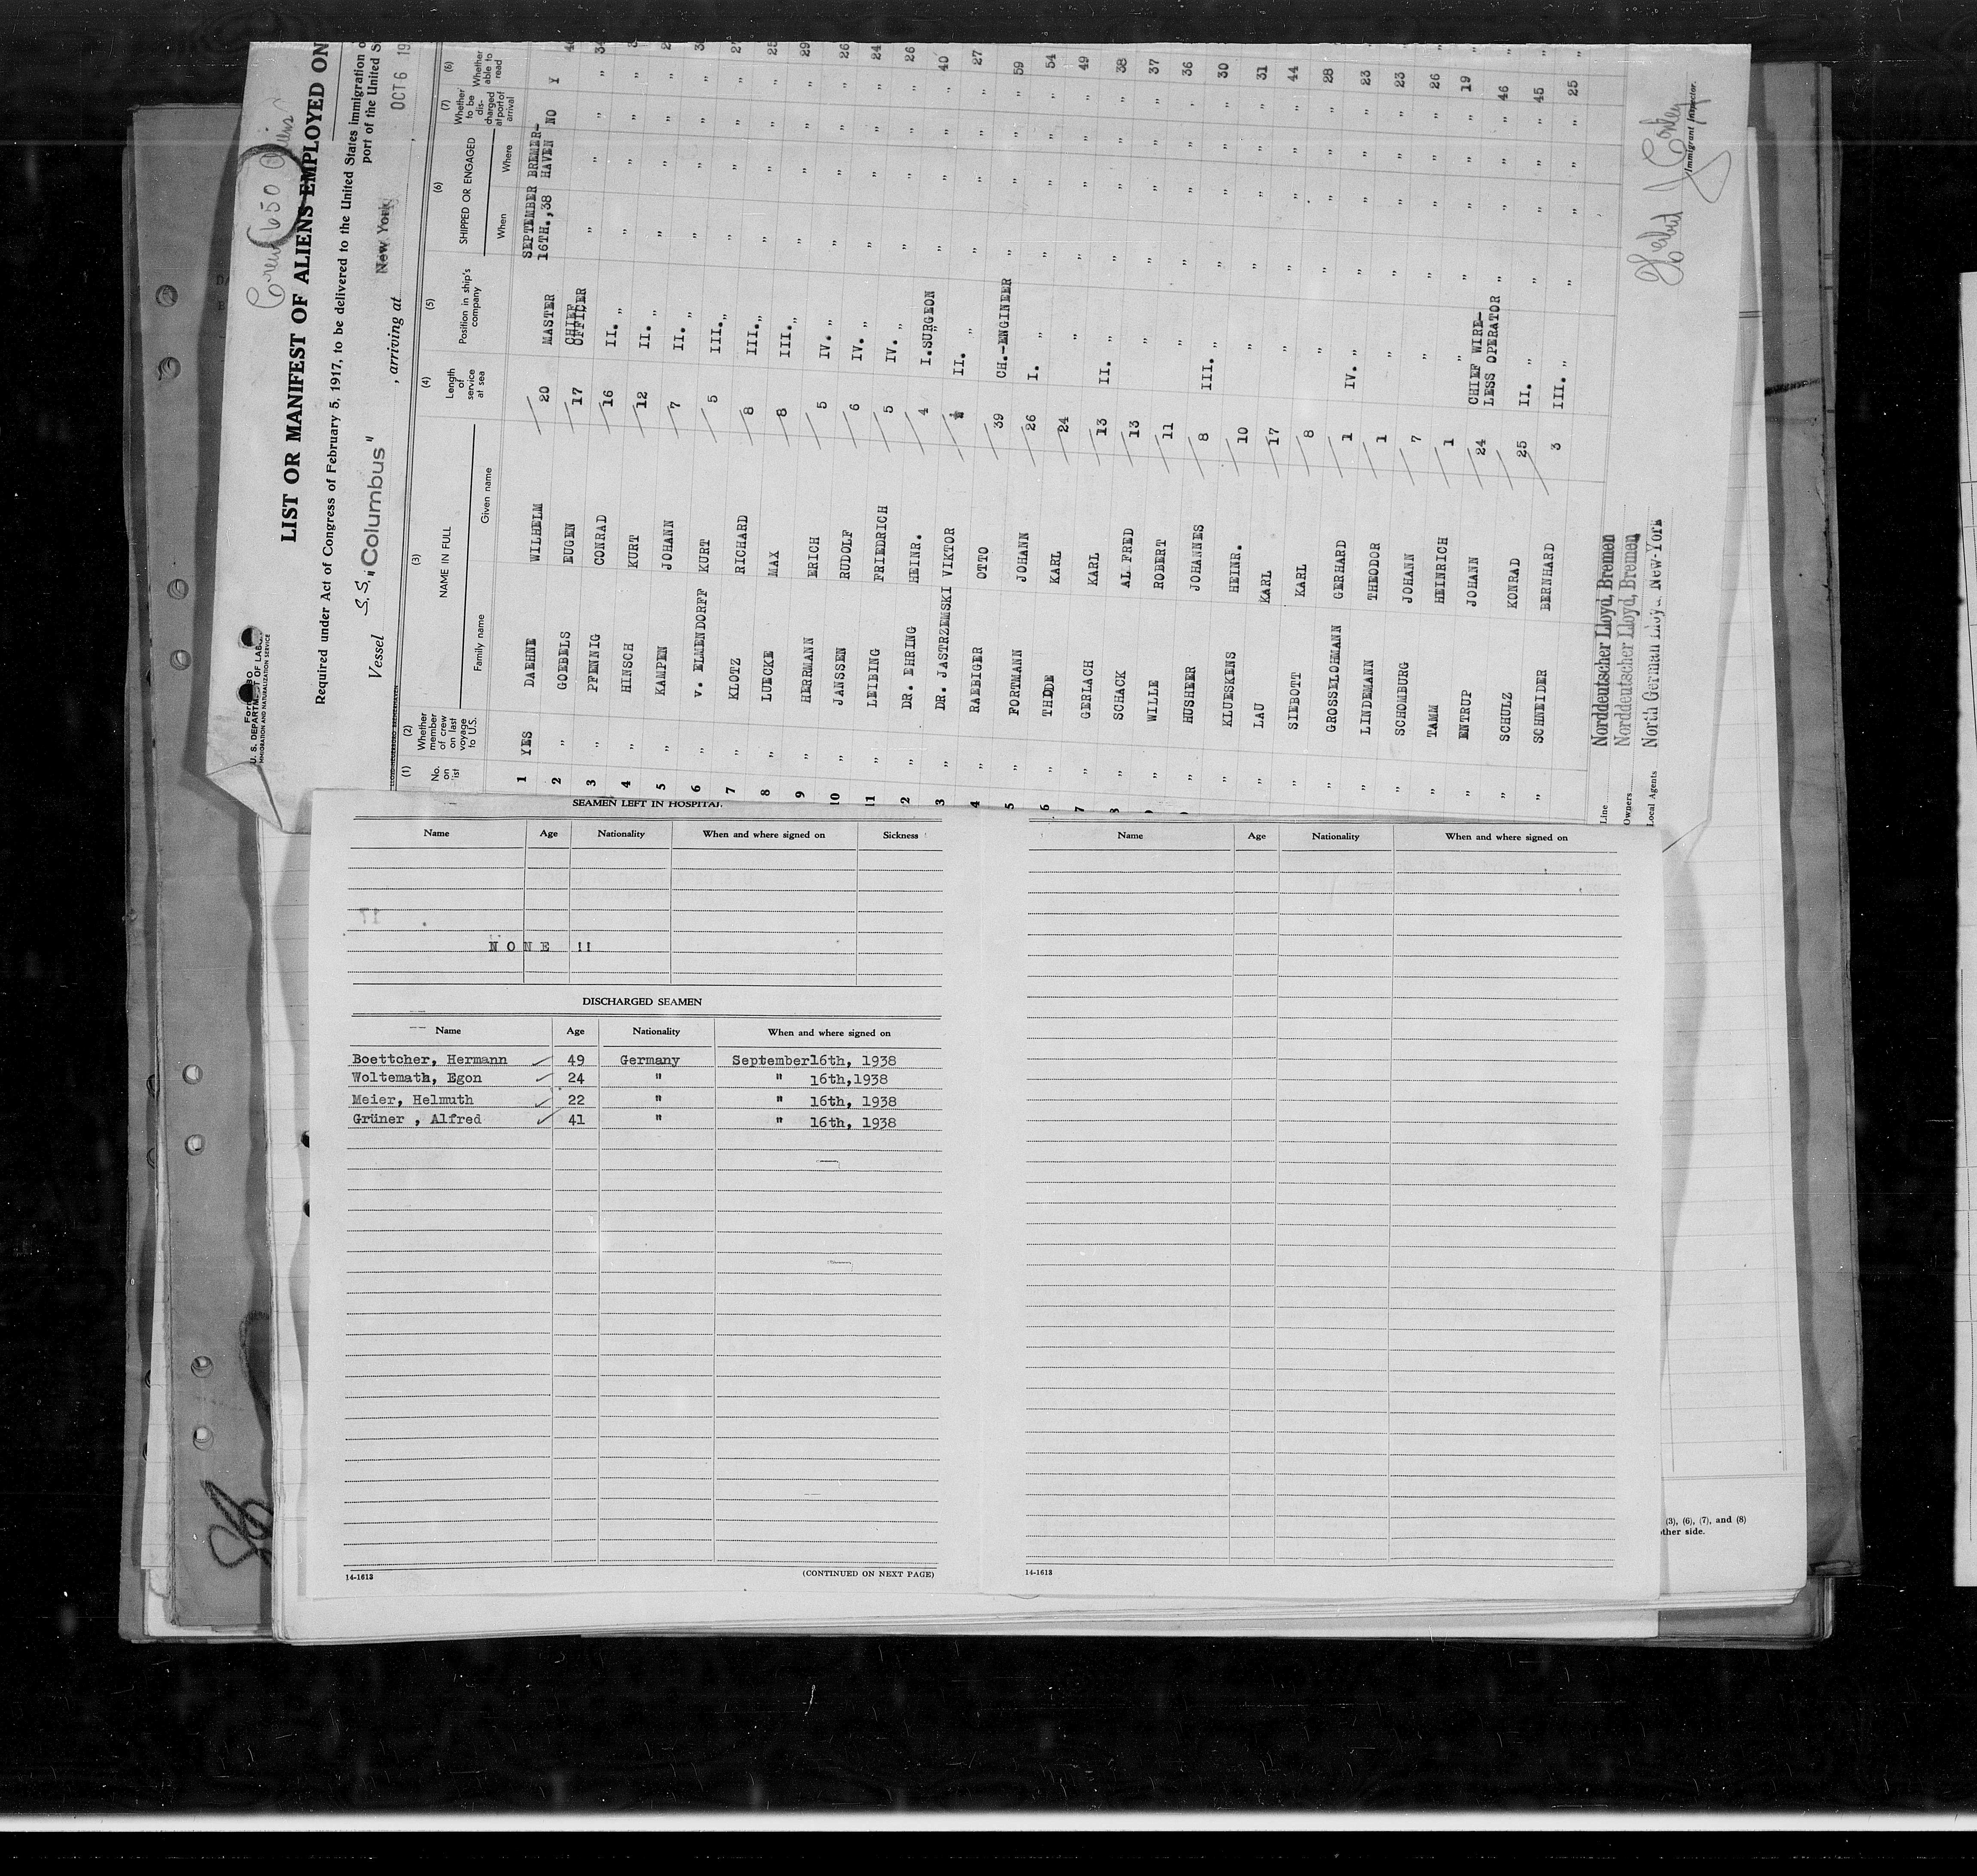 Crew 650 Aliens
Form 680
U. S. DEPARTMENT OF LABOR
IMMIGRATION AND NATURALIZATION SERVICE
LIST OR MANIFEST OF ALIENS EMPLOYED ON
Required under Act of Congress of February 5, 1917, to be delivered to the United States immigration o
port of the United S
Vessel S.S. "Columbus" , arriving at New York , OCT 6 19
(1) (2) (3) (4) (5) (6) (7) (6)
No. on list Whether member of crew on last voyage to U.S. NAME IN FULL Length of service at sea Position in ship's company SHIPPED OR ENGAGED Whether to be discharged at port of arrival Whether able to read
Family name Given name When Where
1 YES DAEHNE WILHELM 20 MASTER SEPTEMBER 16TH.,38 BREMER-HAVEN NO Y
2 " GOEBELS EUGEN 17 CHIEF OFFICER " " " " 34
3 " PFENNIG CONRAD 16 II. " " " " "
4 " HINSCH KURT 12 II. " " " " "
5 " KAMPEN JOHANN 7 II. " " " " "
6 " v. ELMENDORFF KURT 5 III. " " " " " 27
7 " KLOTZ RICHARD 8 III. " " " " " 25
8 " LUECKE MAX 8 III. " " " " " 29
9 " HERRMANN ERICH 5 IV. " " " " " 26
10 " JANSSEN RUDOLF 6 IV. " " " " " 24
11 " LEIBING FRIEDRICH 5 IV. " " " " " 26
2 " DR. EHRING HEINR. 4 I. SURGEON " " " " 40
3 " DR. JASTRZEMSKI VIKTOR ½ II. " " " " " 27
4 " RAEBIGER OTTO 39 CH.-ENGINEER " " " " 59
5 " FORTMANN JOHANN 26 I. " " " " " 54
6 " THODE KARL 24 " " " " " 49
7 " GERLACH KARL 13 II. " " " " " 38
8 " SCHACK ALFRED 13 " " " " " 37
" WILLE ROBERT 11 " " " " " 36
" HUSHEER JOHANNES 8 III. " " " " " 30
" KLUESKENS HEINR. 10 " " " " " 31
" LAU KARL 17 " " " " " 44
" SIEBOTT KARL 8 " " " " " 28
" GROSSELOHMANN GERHARD 1 IV. " " " " " 23
" LINDEMANN THEODOR 1 " " " " " 23
" SCHOMBURG JOHANN 7 " " " " " 26
" TAMM HEINRICH 1 " " " " " 19
" ENTRUP JOHANN 24 CHIEF WIRE-LESS OPERATOR " " " " 46
" SCHULZ KONRAD 25 II. " " " " " 45
" SCHNEIDER BERNHARD 3 III. " " " " " 25
Line Norddeutscher Lloyd, Bremen
Owners Norddeutscher Lloyd, Bremen
Local Agents North German Lloyd New-York
Immigrant Inspector.
SEAMEN LEFT IN HOSPITAL
Name Age Nationality When and where signed on Sickness
NONE !!
DISCHARGED SEAMEN
Name Age Nationality When and where signed on
Boettcher, Hermann 49 Germany September16th, 1938
Woltemath, Egon 24 " " 16th,1938
Meier, Helmuth 22 " " 16th, 1938
Grüner , Alfred 41 " " 16th, 1938
14-1613 (CONTINUED ON NEXT PAGE)
Name Age Nationality When and where signed on
14-1613
(3), (6), (7), and (8)
other side.